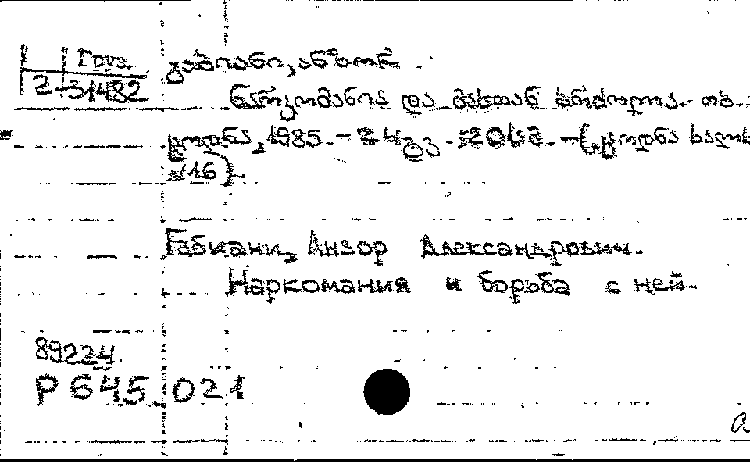 Груз. გაბიანი, ანზორ.
2-31482
ნარკომანია და მასთან ბრძოლა. თბ.
ცოდნა, 1985. - 24 გვ. 20სმ. - („ცოდნა
16).
Габиани, Анзор Александрович.
Наркомания и борьба с ней.
89224.
Р645 021